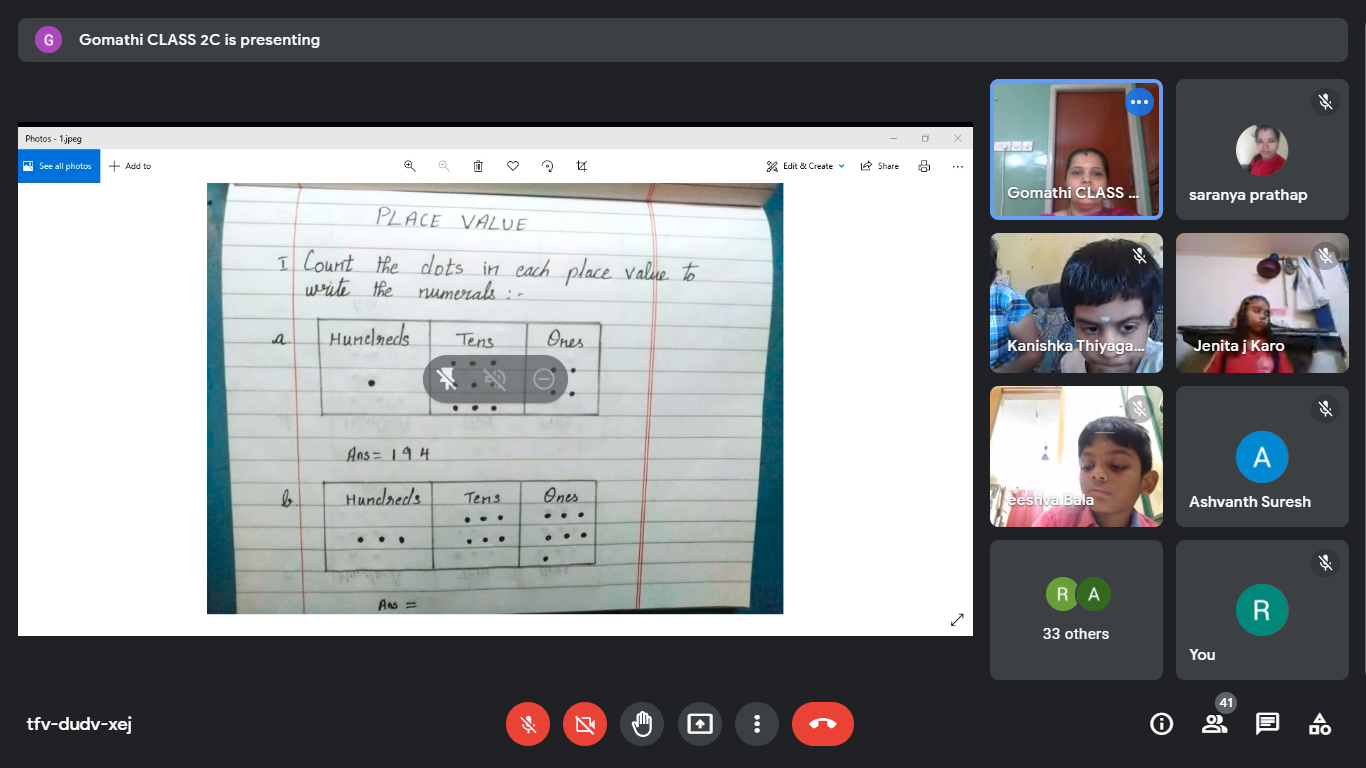 G Gomathi CLASS 2C is presenting
Photos - 1.jpeg
See all photos
Add to
Edit & Create
Share
PLACE VALUE
I Count the dots in each place value to
write the numerals :-
a. Hundreds Tens Ones
Ans = 194
b. Hundreds Tens Ones
Ans =
Gomathi CLASS ...
saranya prathap
Kanishka Thiyaga...
Jenita j Karo
eeshva Bala
A
Ashvanth Suresh
R A
33 others
R
You
tfv-dudv-xej
41